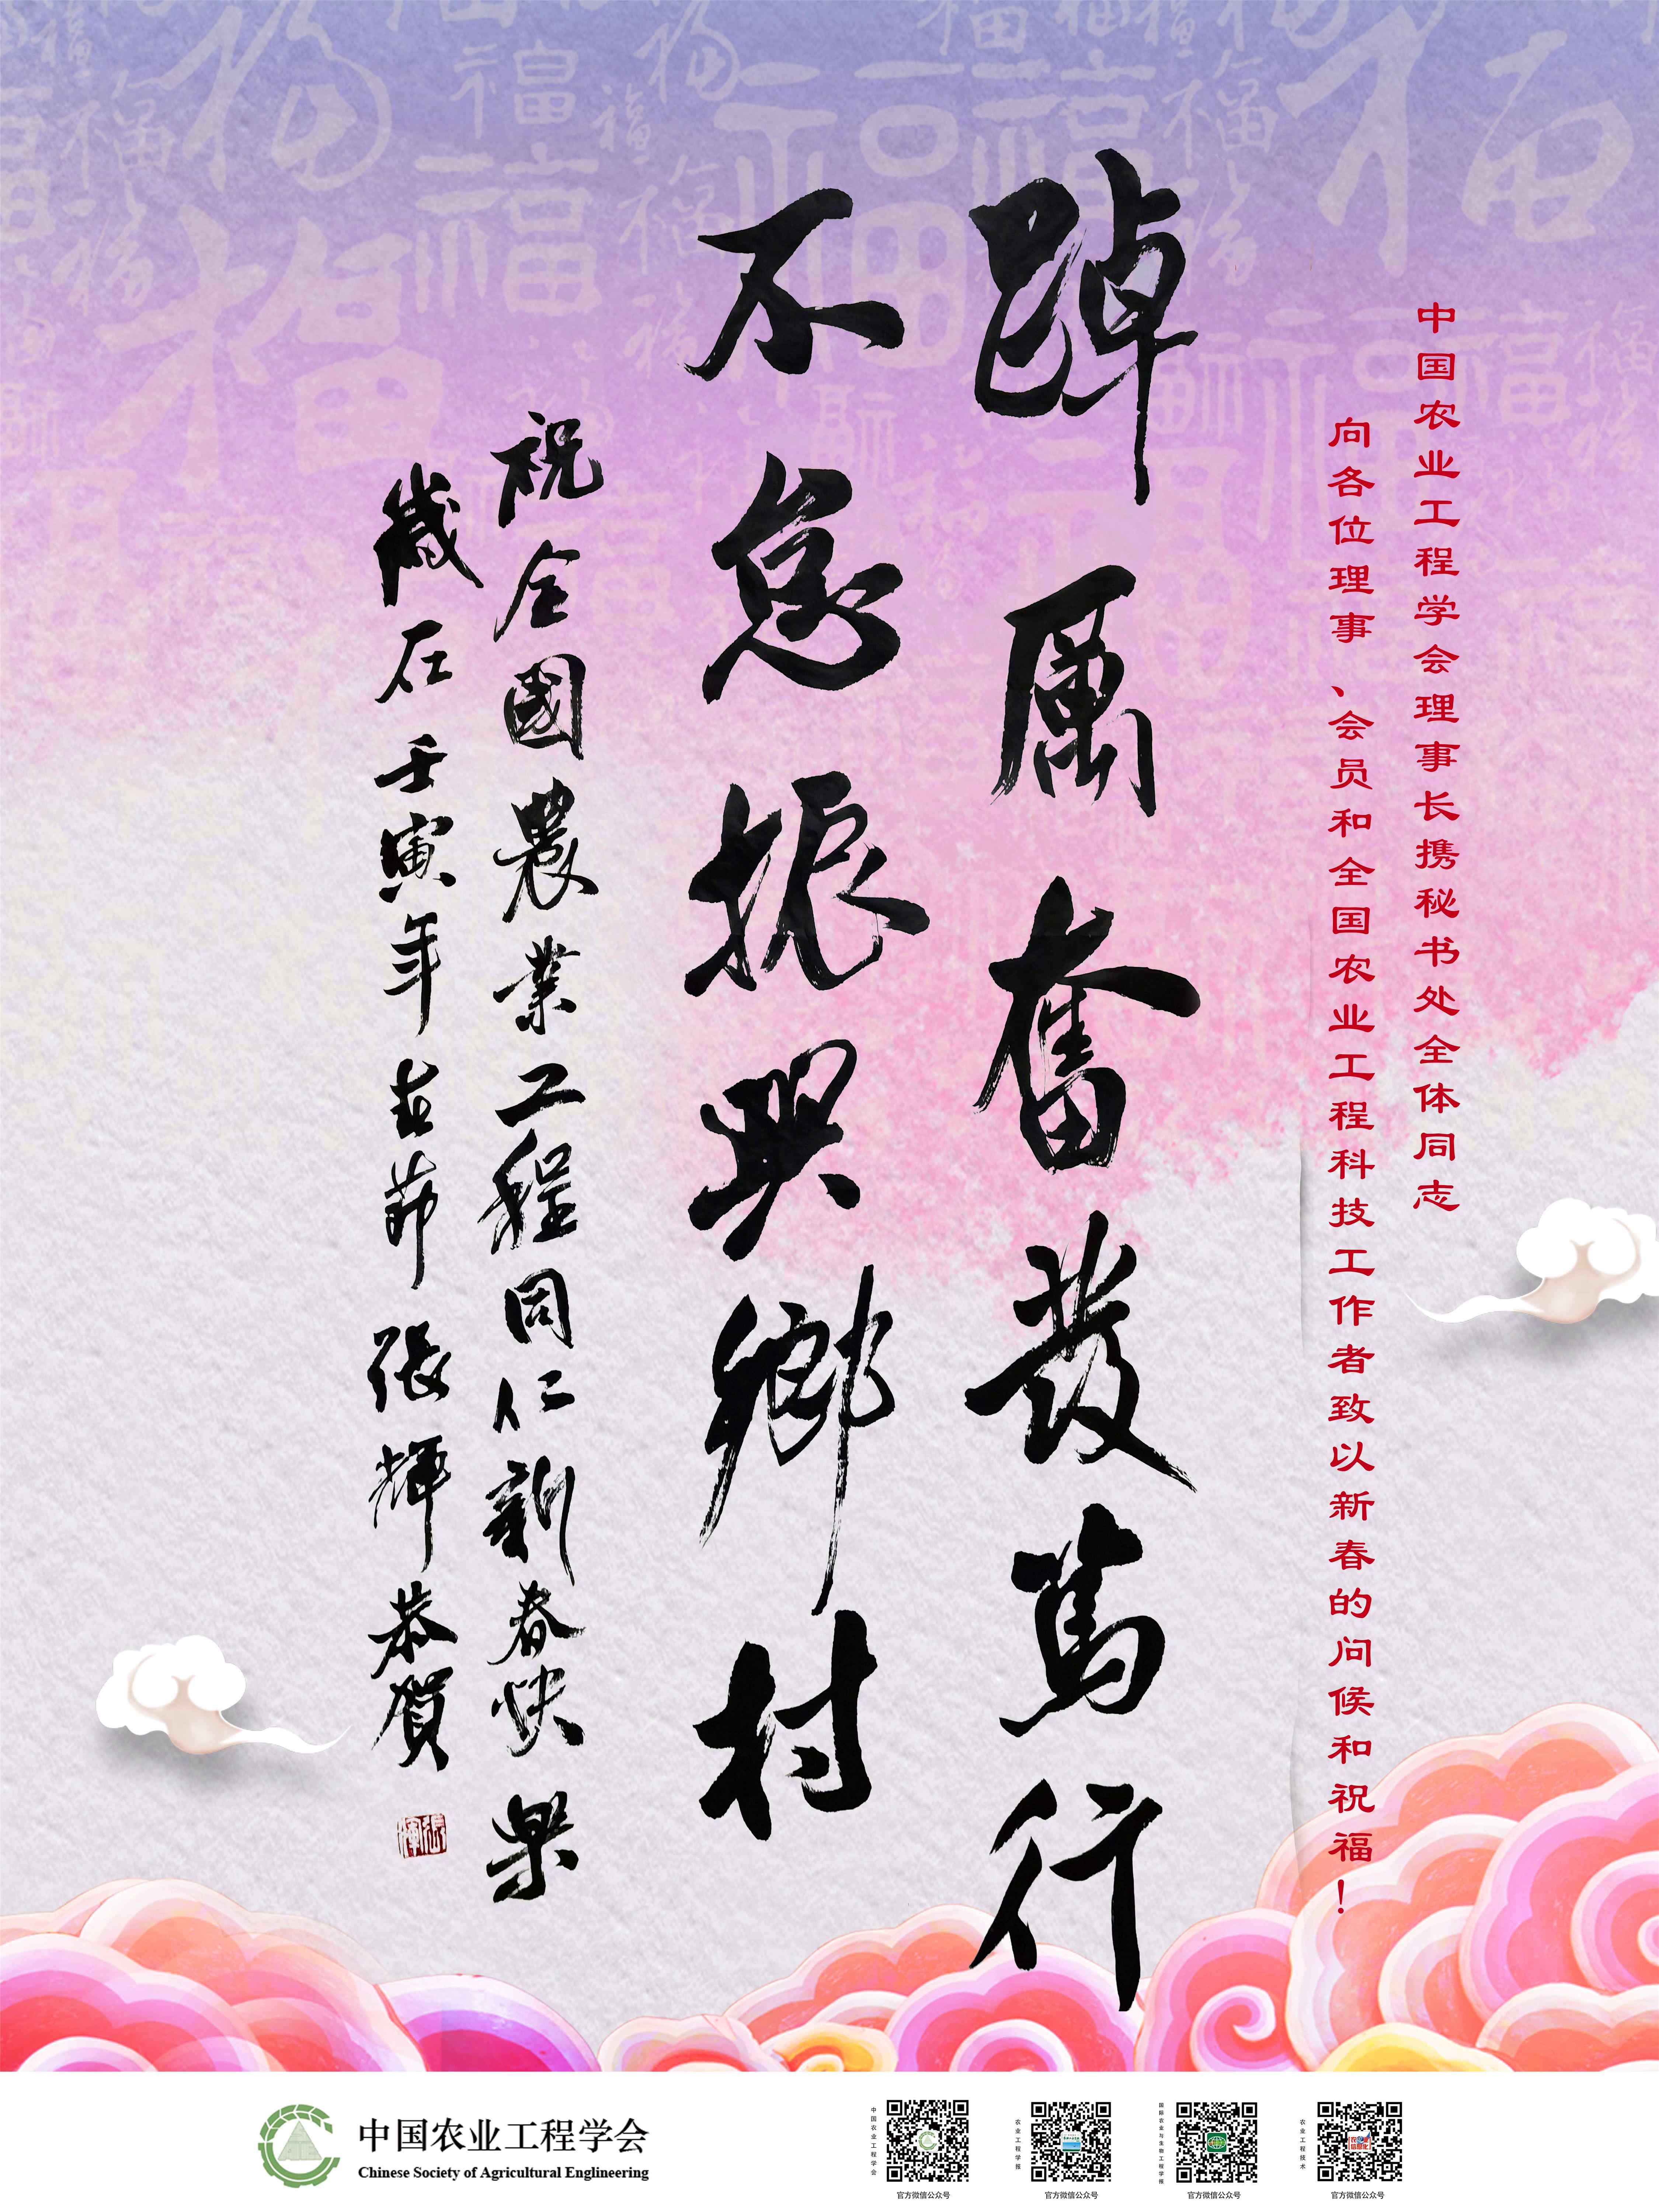 中国农业工程学会理事长携秘书处全体同志
向各位理事、会员和全国农业工程科技工作者致以新春的问候和祝福！
踔厲奮發篤行
不怠振興鄉村
祝全國農業工程同仁新春快樂
歲在壬寅年春節張輝恭賀
張輝
中国农业工程学会
Chinese Society of Agricultural Englineering
中国农业工程学会
官方微信公众号
农业工程学报
官方微信公众号
国际农业与生物工程学报
官方微信公众号
农业工程技术
官方微信公众号